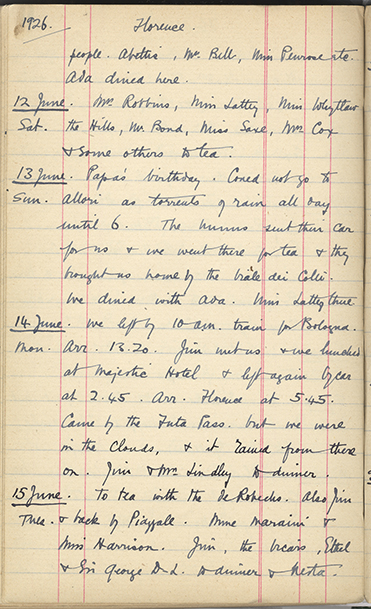 1926. Florence.
people. Abetti, Mr. Bill, Miss Penrose etc.
Ada dined here.
12 June. Mrs Robbins, Miss Lattey, Miss Whyttaw
Sat. the Hills, Mr Bond, Miss Saxe, Mrs Cox
& some others to tea.
13 June. Papa's birthday. Could not go to
Sun. Allori as torrents of rain all day
until 6. The sent their car
for us & we went there for tea & they
brought us home by the Viale dei Colli.
We dined with Ada. Miss Lattey there
14 June. We left by 10 a.m. train for Bologna.
Mon. Arr. 13.20. Jim met us & we lunched
at Majestic Hotel & left again by car
at 2.45. Arr. Florence at 5.45.
Came by the Futa Pass. but we were
in the clouds, & it rained from there
on. Jim & Mrs Lindley to dinner.
15 June. To tea with the De Robecks. Also Jim
Tues. & back by Piazzale. Mme Maraini &
Miss Harrison. Jim, the Vicars, Ethel
& Sir George D.L. to dinner & Nesta.